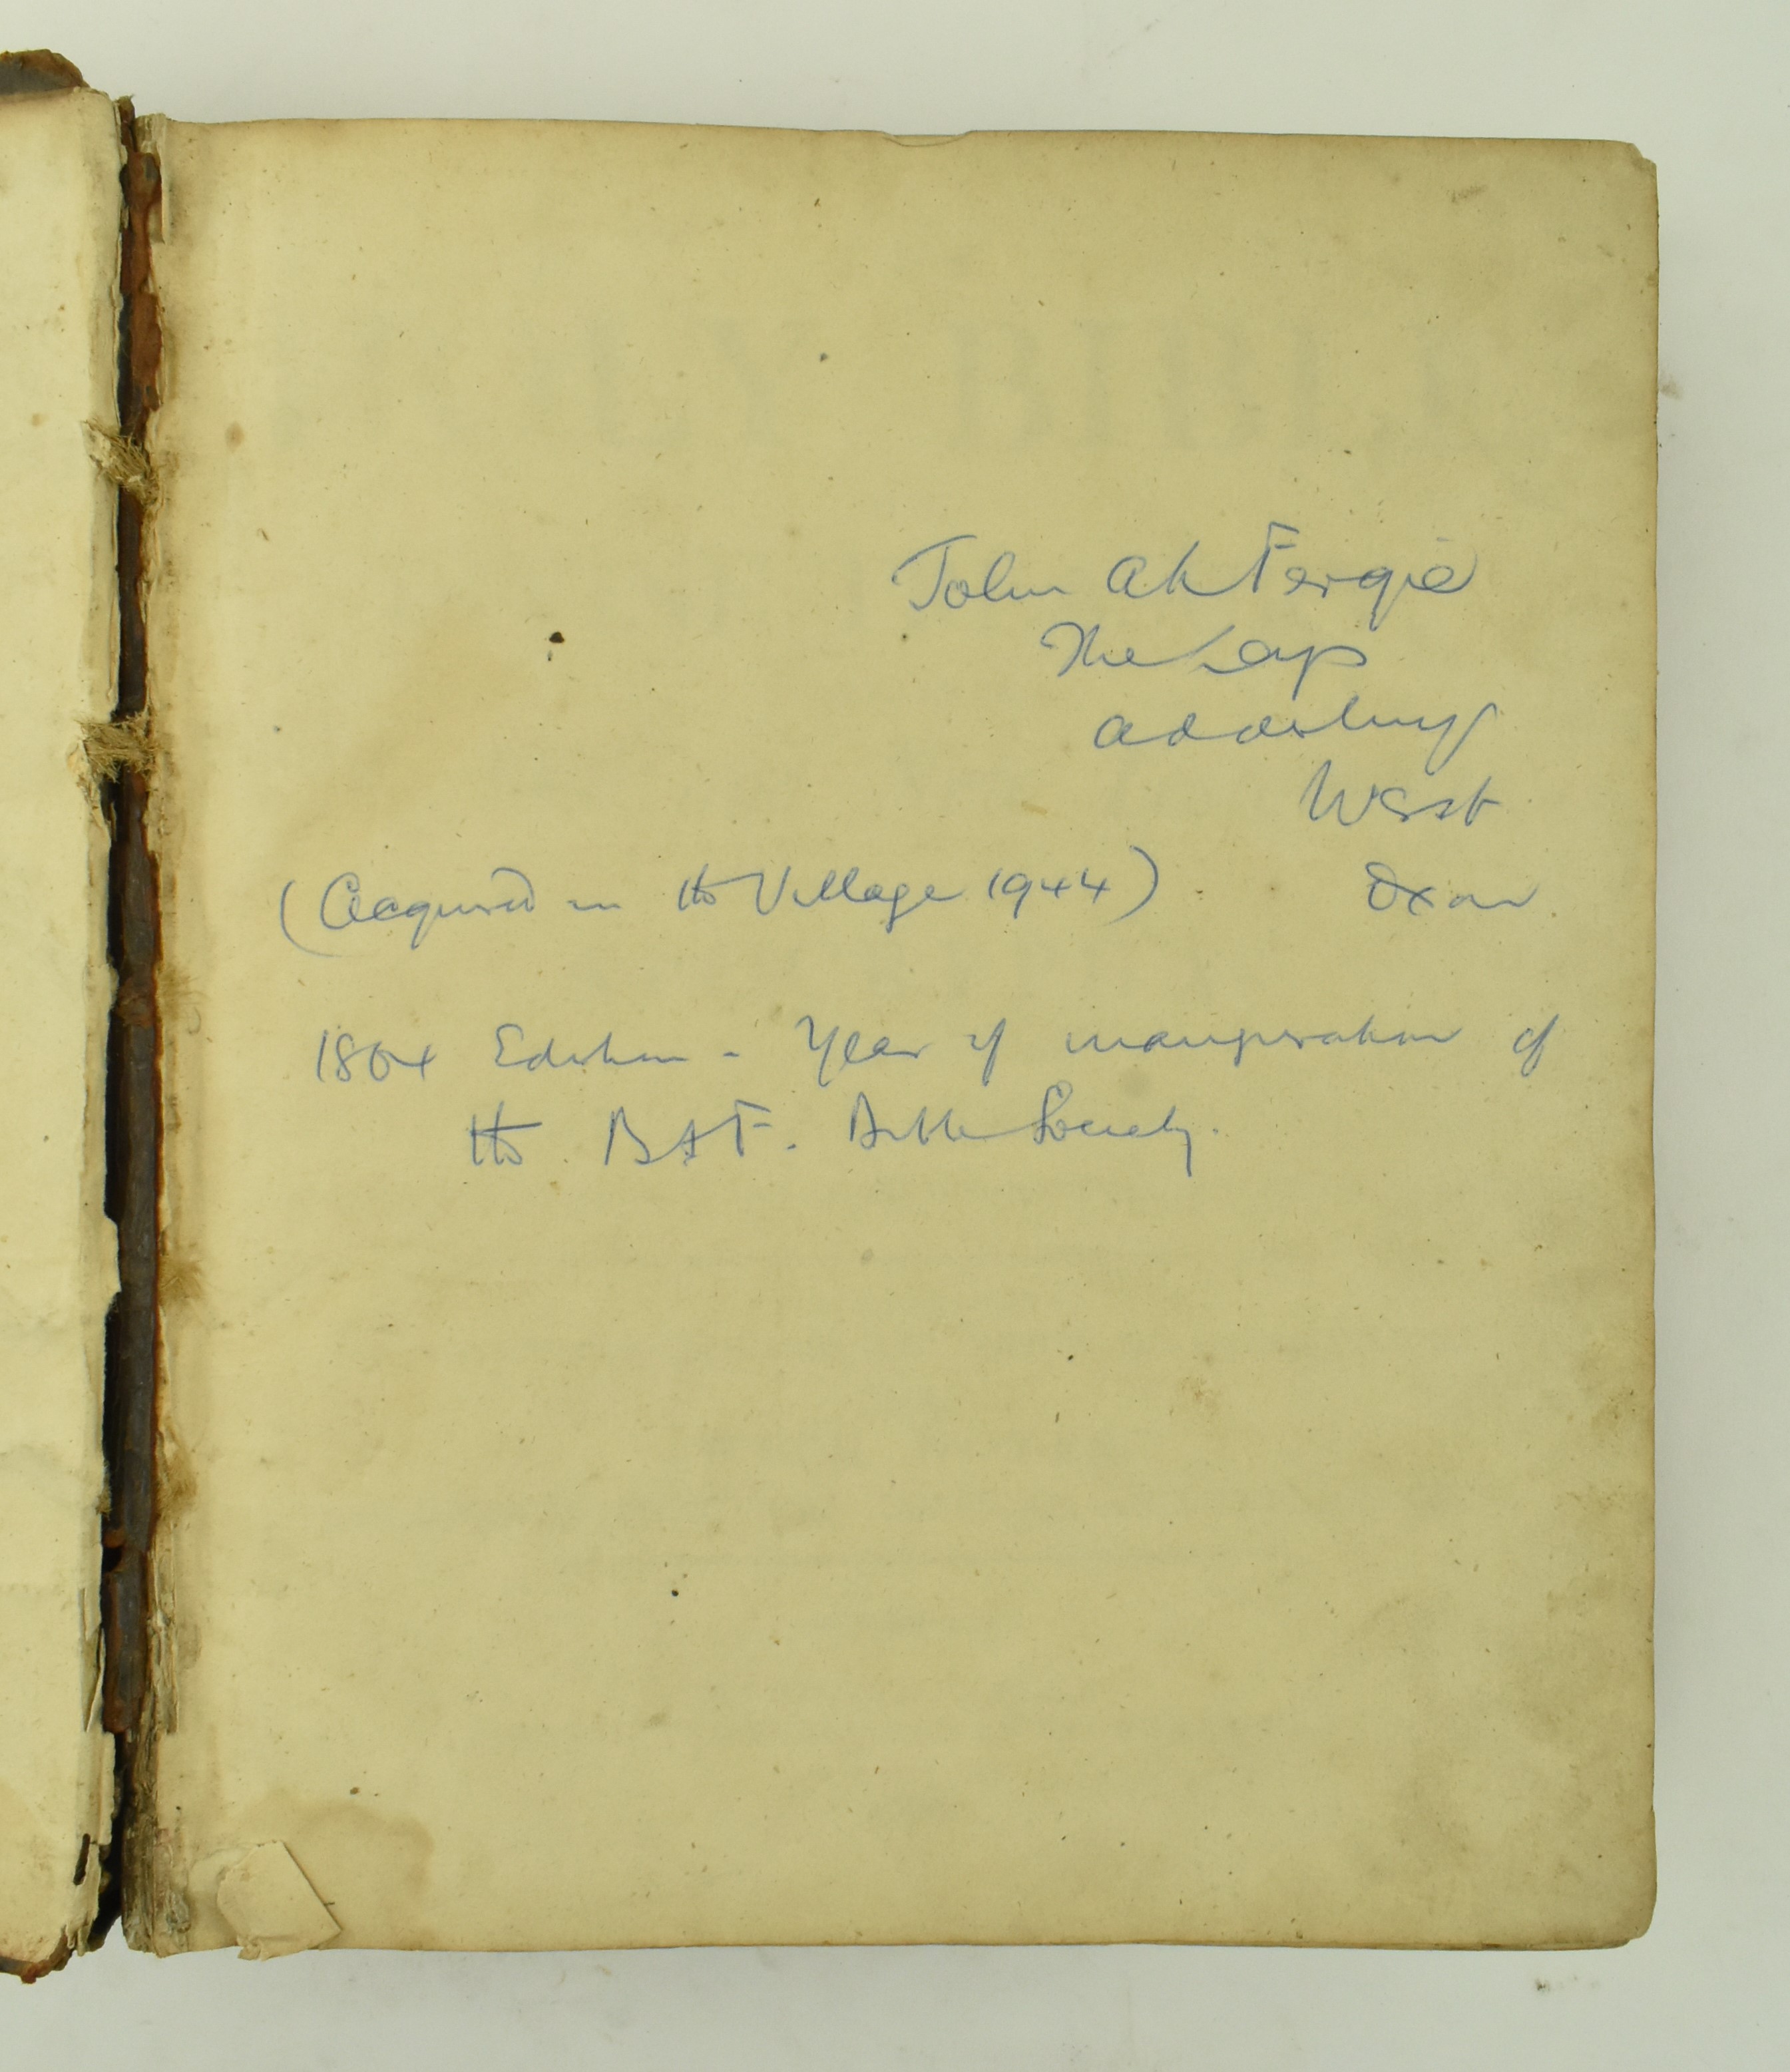 John A K Fergie
The Leys
Adderbury
West
(Acquired in the Village 1944) Oxon
1804 Edition - Year of inauguration of
the B & F. Bible Society.